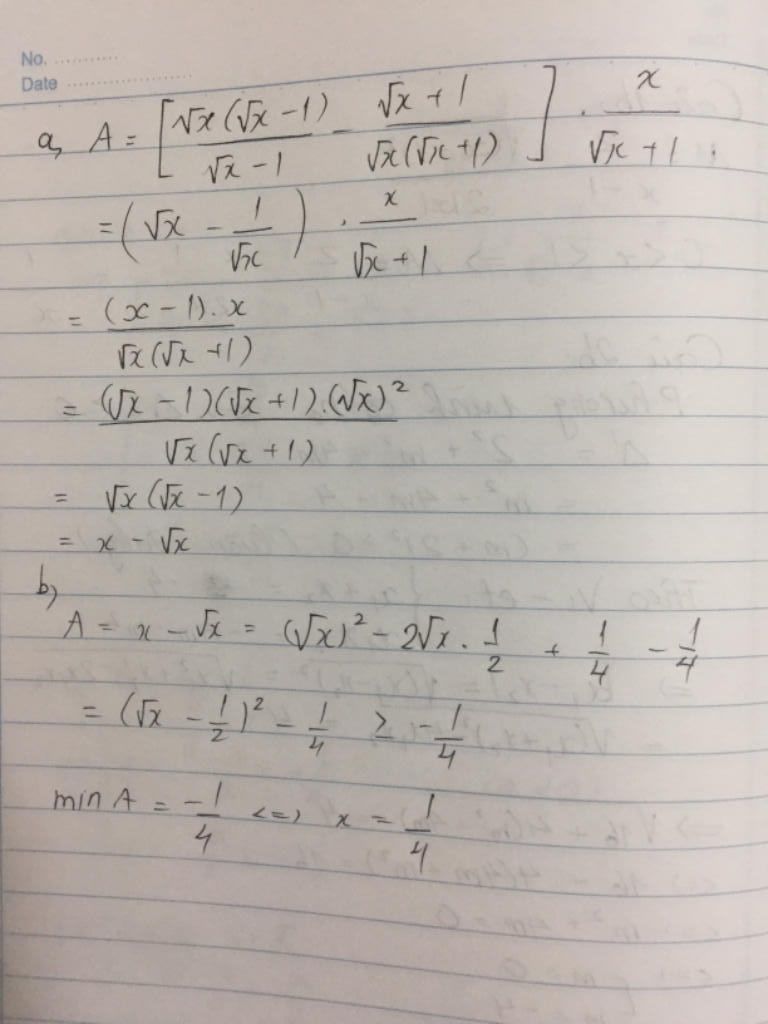 No. ............
Date ........................
a, A = [√x(√x - 1)/(√x - 1) - (√x + 1)/(√x(√x + 1))] . x/(√x + 1) .
= (√x - 1/√x) . x/(√x + 1)
= (x - 1).x/(√x(√x + 1))
= (√x - 1)(√x + 1).(√x)²/(√x(√x + 1))
= √x(√x - 1)
= x - √x
b,
A = x - √x = (√x)² - 2√x . 1/2 + 1/4 - 1/4
= (√x - 1/2)² - 1/4 ≥ -1/4
min A = -1/4 <=> x = 1/4